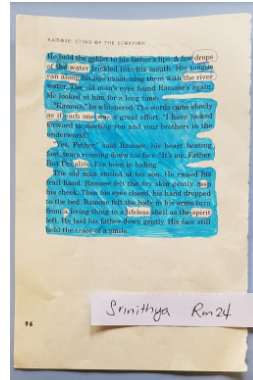 RAMOSE: STING OF THE SCORPION
He held the goblet to his father's lips. A few drops
of the water trickled into his mouth. His tongue
ran along his lips moistening them with the river
water. The old man's eyes found Ramose's again.
He looked at him for a long time.
"Ramose," he whispered. The words came slowly
as if each one was a great effort. "I have looked
forward to meeting you and your brothers in the
underworld."
"Yes, Father," said Ramose, his heart beating
fast, tears running down his face. "It's me, Father
but I'm alive. I've been in hiding."
The old man smiled at his son. He raised his
frail hand. Ramose felt the dry skin gently
his cheek. Then his eyes closed, his hand dropped
to the bed. Ramose felt the body in his arms turn
from a living thing to a lifeless shell as the spirit
left. He laid his father down gently. His face still
held the trace of a smile.
Srinithya Rm 24
96